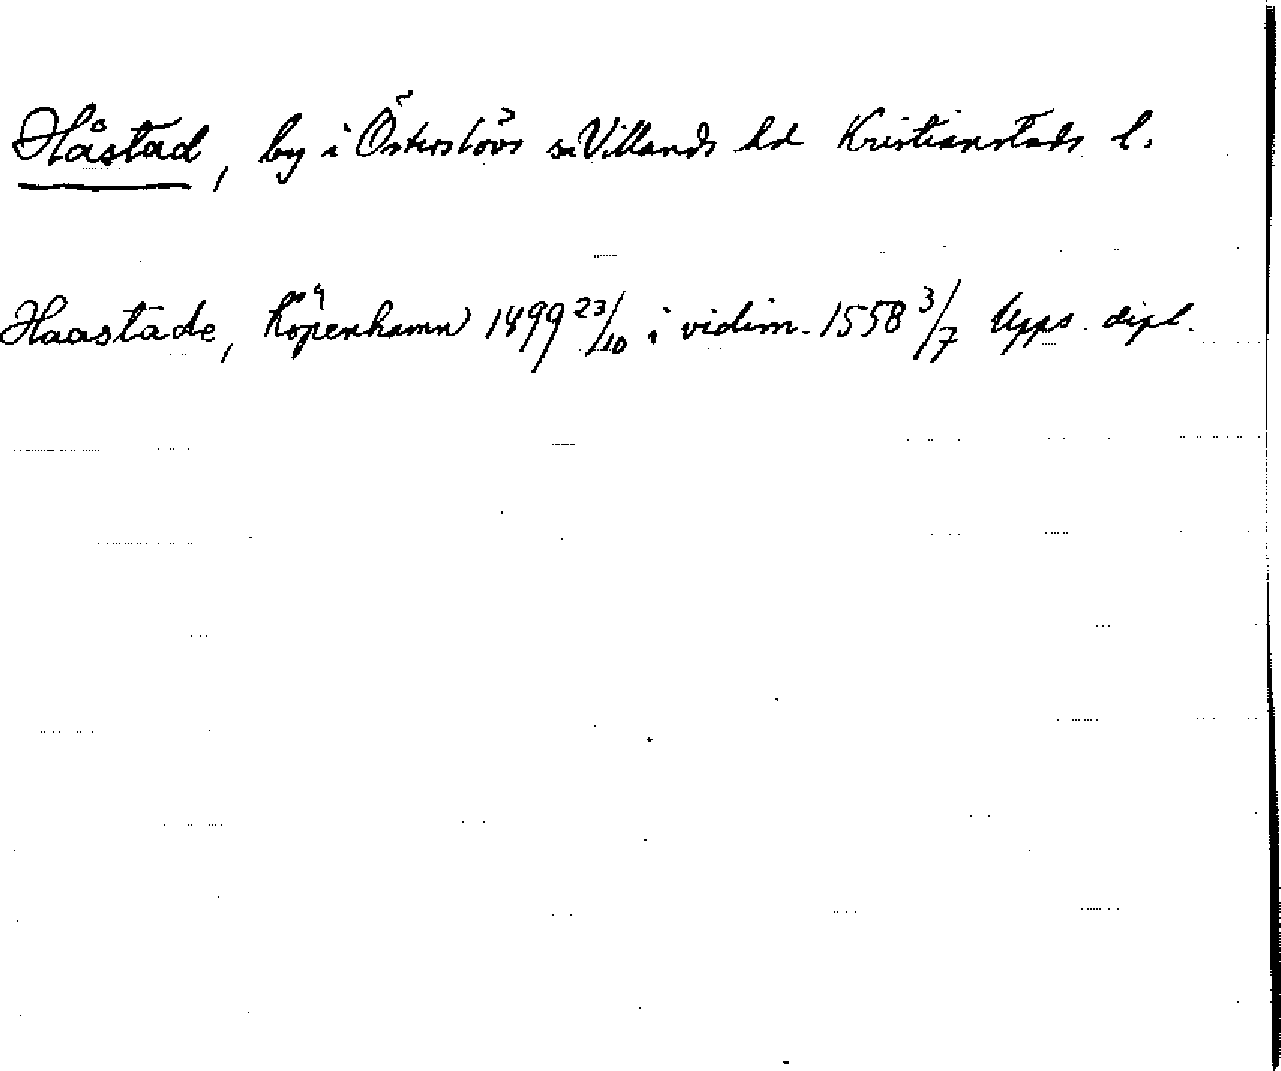 Håstad, by i Österslövs sn Villands hd Kristianstads l.
Haastade, Köpenhamn 1499 23/10 i vidim. 1558 3/7 Upps. dipl.